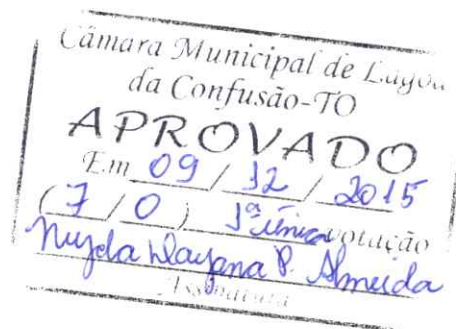 Câmara Municipal de Lagoa
da Confusão-TO
APROVADO
Em 09 / 12 / 2015
( 7 / 0 ) 1ª única votação
Dayana P. Almeida
Assinatura